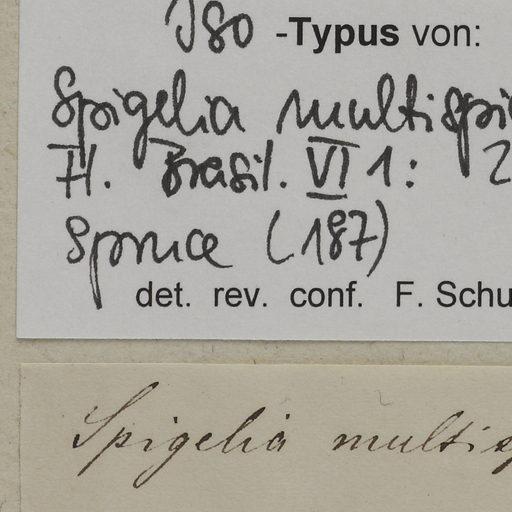 Iso -Typus von:
Spigelia multispi
Fl. Brasil. VI 1: 2
Spruce (187)
det. rev. conf. F. Schu
Spigelia multisp